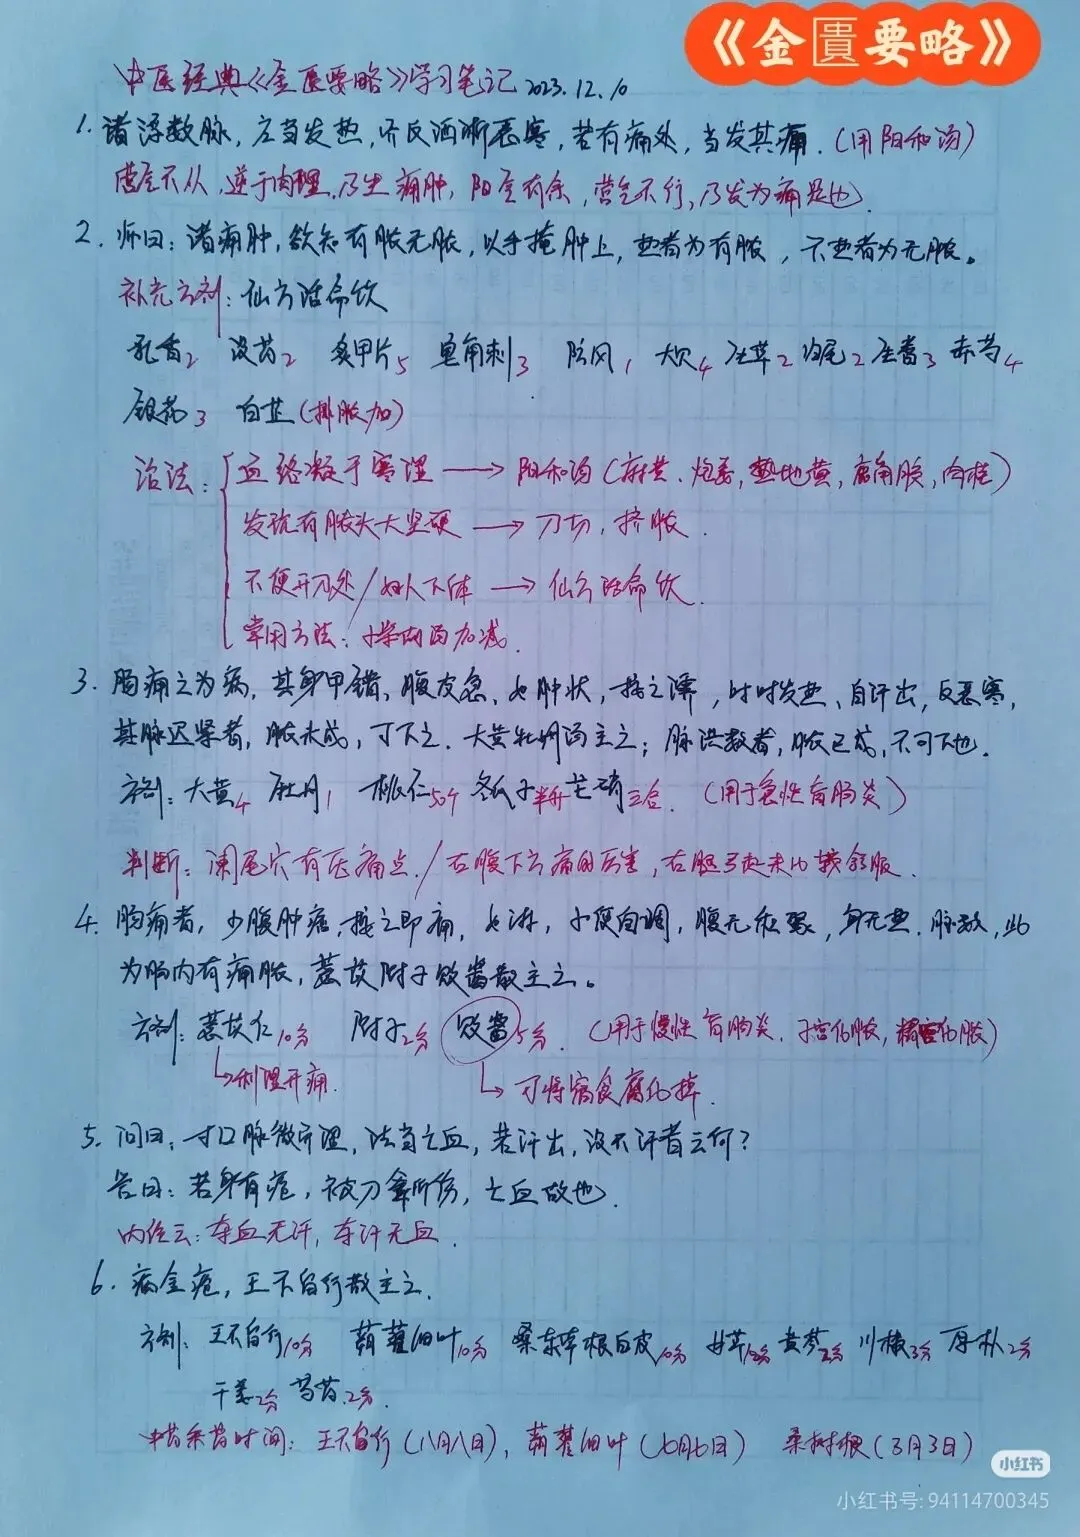 《金匱要略》
中医经典《金匮要略》学习笔记 2023.12.10
1. 诸浮数脉，应当发热，而反洒淅恶寒，若有痛处，当发其痈.（用阳和汤）
营气不从，逆于肉理，乃生痈肿，阳气有余，营气不行，乃发为痈是也.
2. 师曰：诸痈肿，欲知有脓无脓，以手掩肿上，热者为有脓，不热者为无脓。
补充方剂：仙方活命饮
乳香2 没药2 炙甲片5 皂角刺3 防风1 大贝4 生草2 归尾2 生香3 赤芍4
银花3 白芷（排脓加）
治法：血络凝于寒湿 → 阳和汤（麻黄、炮姜，熟地黄，鹿角胶，肉桂）
发现有脓头大坚硬 → 刀切，挤脓.
不便开刀处/妇人下体 → 仙方活命饮.
常用方法：小柴胡汤加减.
3. 肠痈之为病，其身甲错，腹皮急，如肿状，按之濡，时时发热、自汗出，反恶寒，
其脉迟紧者，脓未成，可下之．大黄牡丹汤主之；脉洪数者，脓已成，不可下也.
方剂：大黄4 牡丹1 桃仁50个 冬瓜子半升 芒硝三合.（用于急性盲肠炎）
判断：阑尾穴有压痛点./右腹下方痛的厉害，右腿弓起来比较舒服.
4. 肠痈者，少腹肿痞，按之即痛，如淋，小便自调，腹无积聚，身无热．脉数，此
为肠内有痈脓，薏苡附子败酱散主之。
方剂：薏苡仁10分 附子2分 败酱5分.（用于慢性盲肠炎．子宫化脓，化脓）
↳利湿开痈.
↳可将宿食腐化掉.
5. 问曰：寸口脉微而涩，法当亡血，若汗出，设不汗者云何？
答曰：若身有疮，被刀斧所伤，亡血故也.
内经云：夺血无汗，夺汗无血.
6. 病金疮，王不留行散主之.
方剂：王不留行10分 蒴藋细叶10分 桑东南根白皮10分 甘草 黄芩2分 川椒3分 厚朴2分
干姜2分 芍药.2分.
中药采药时间：王不留行（八月八日），蒴藋细叶（七月七日） 桑树根（3月3日）
小红书
小红书号: 94114700345